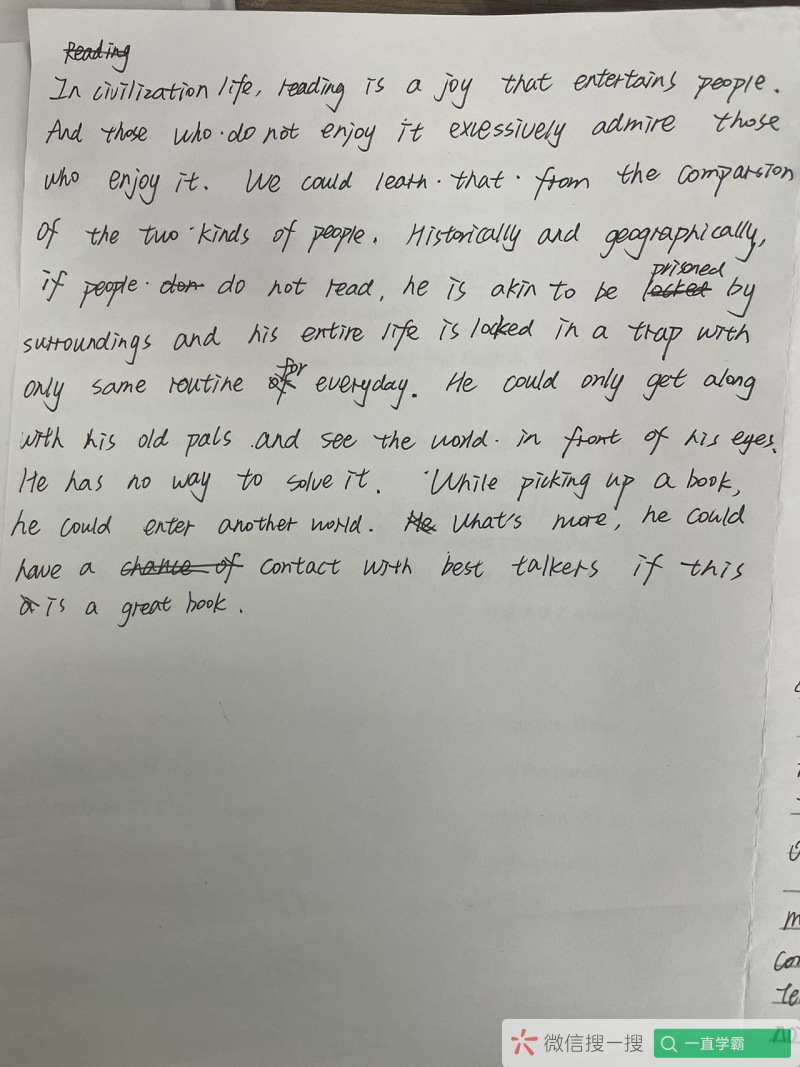 Reading
In civilization life, reading is a joy that entertains people.
And those who do not enjoy it exlessively admire those
who enjoy it. We could learn that from the comparsion
of the two kinds of people. Historically and geographically,
if people don do not read, he is akin to be locked prisoned by
surroundings and his entire life is locked in a trap with
only same routine of for everyday. He could only get along
with his old pals and see the world in front of his eyes.
He has no way to solve it. While picking up a book,
he could enter another world. He What's more, he could
have a chance of contact with best talkers if this
a is a great book.
微信搜一搜
一直学霸